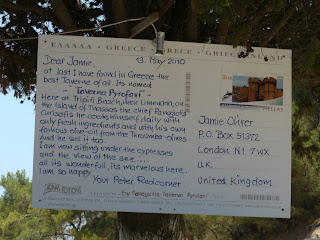 ΕΛΛΑΔΑ - GREECE - GRECE - GRIECHENLAND
Dear Jamie, 13. May 2010
at last I have found in Greece the
best Taverne of all. Its named
- "Taverna Pyrofani" -
Here at Tripiti Beach, near Limenaria, on
the Island of Thassos the chief Panagiotis
he cooks himself daily with
only fresh ingredients and with his own
famous olive-oil from the Throumba-olives.
And he set it too.
I am now sitting under the cypresses
and the view of the sea....
all is wonderfull, its marvelous here.
I am so happy
Your Peter Radcorner
HELLAS
Jamie Oliver
P.O. Box 51372
London N1 7WX
U.K.
United Kingdom
EDITIONS
Taverna "Pyrofani"